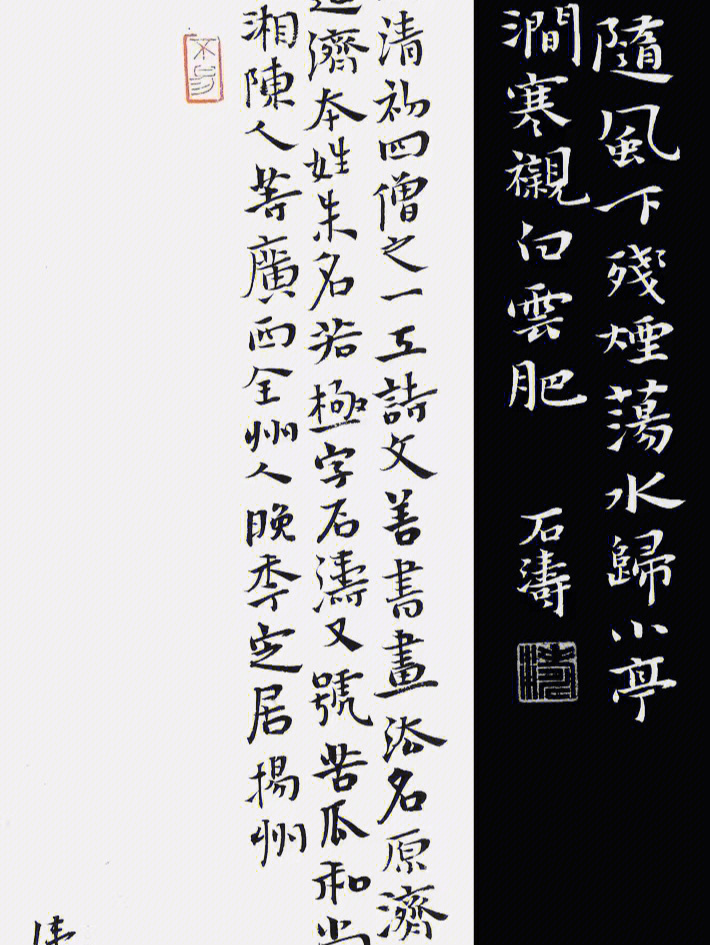 隨風下殘煙蕩水歸小亭
澗寒襯白雲肥
石濤
清初四僧之一工詩文善書畫法名原濟
濟本姓朱名若極字石濤又號苦瓜和尚
湘陳人等廣西全州人晚年定居揚州